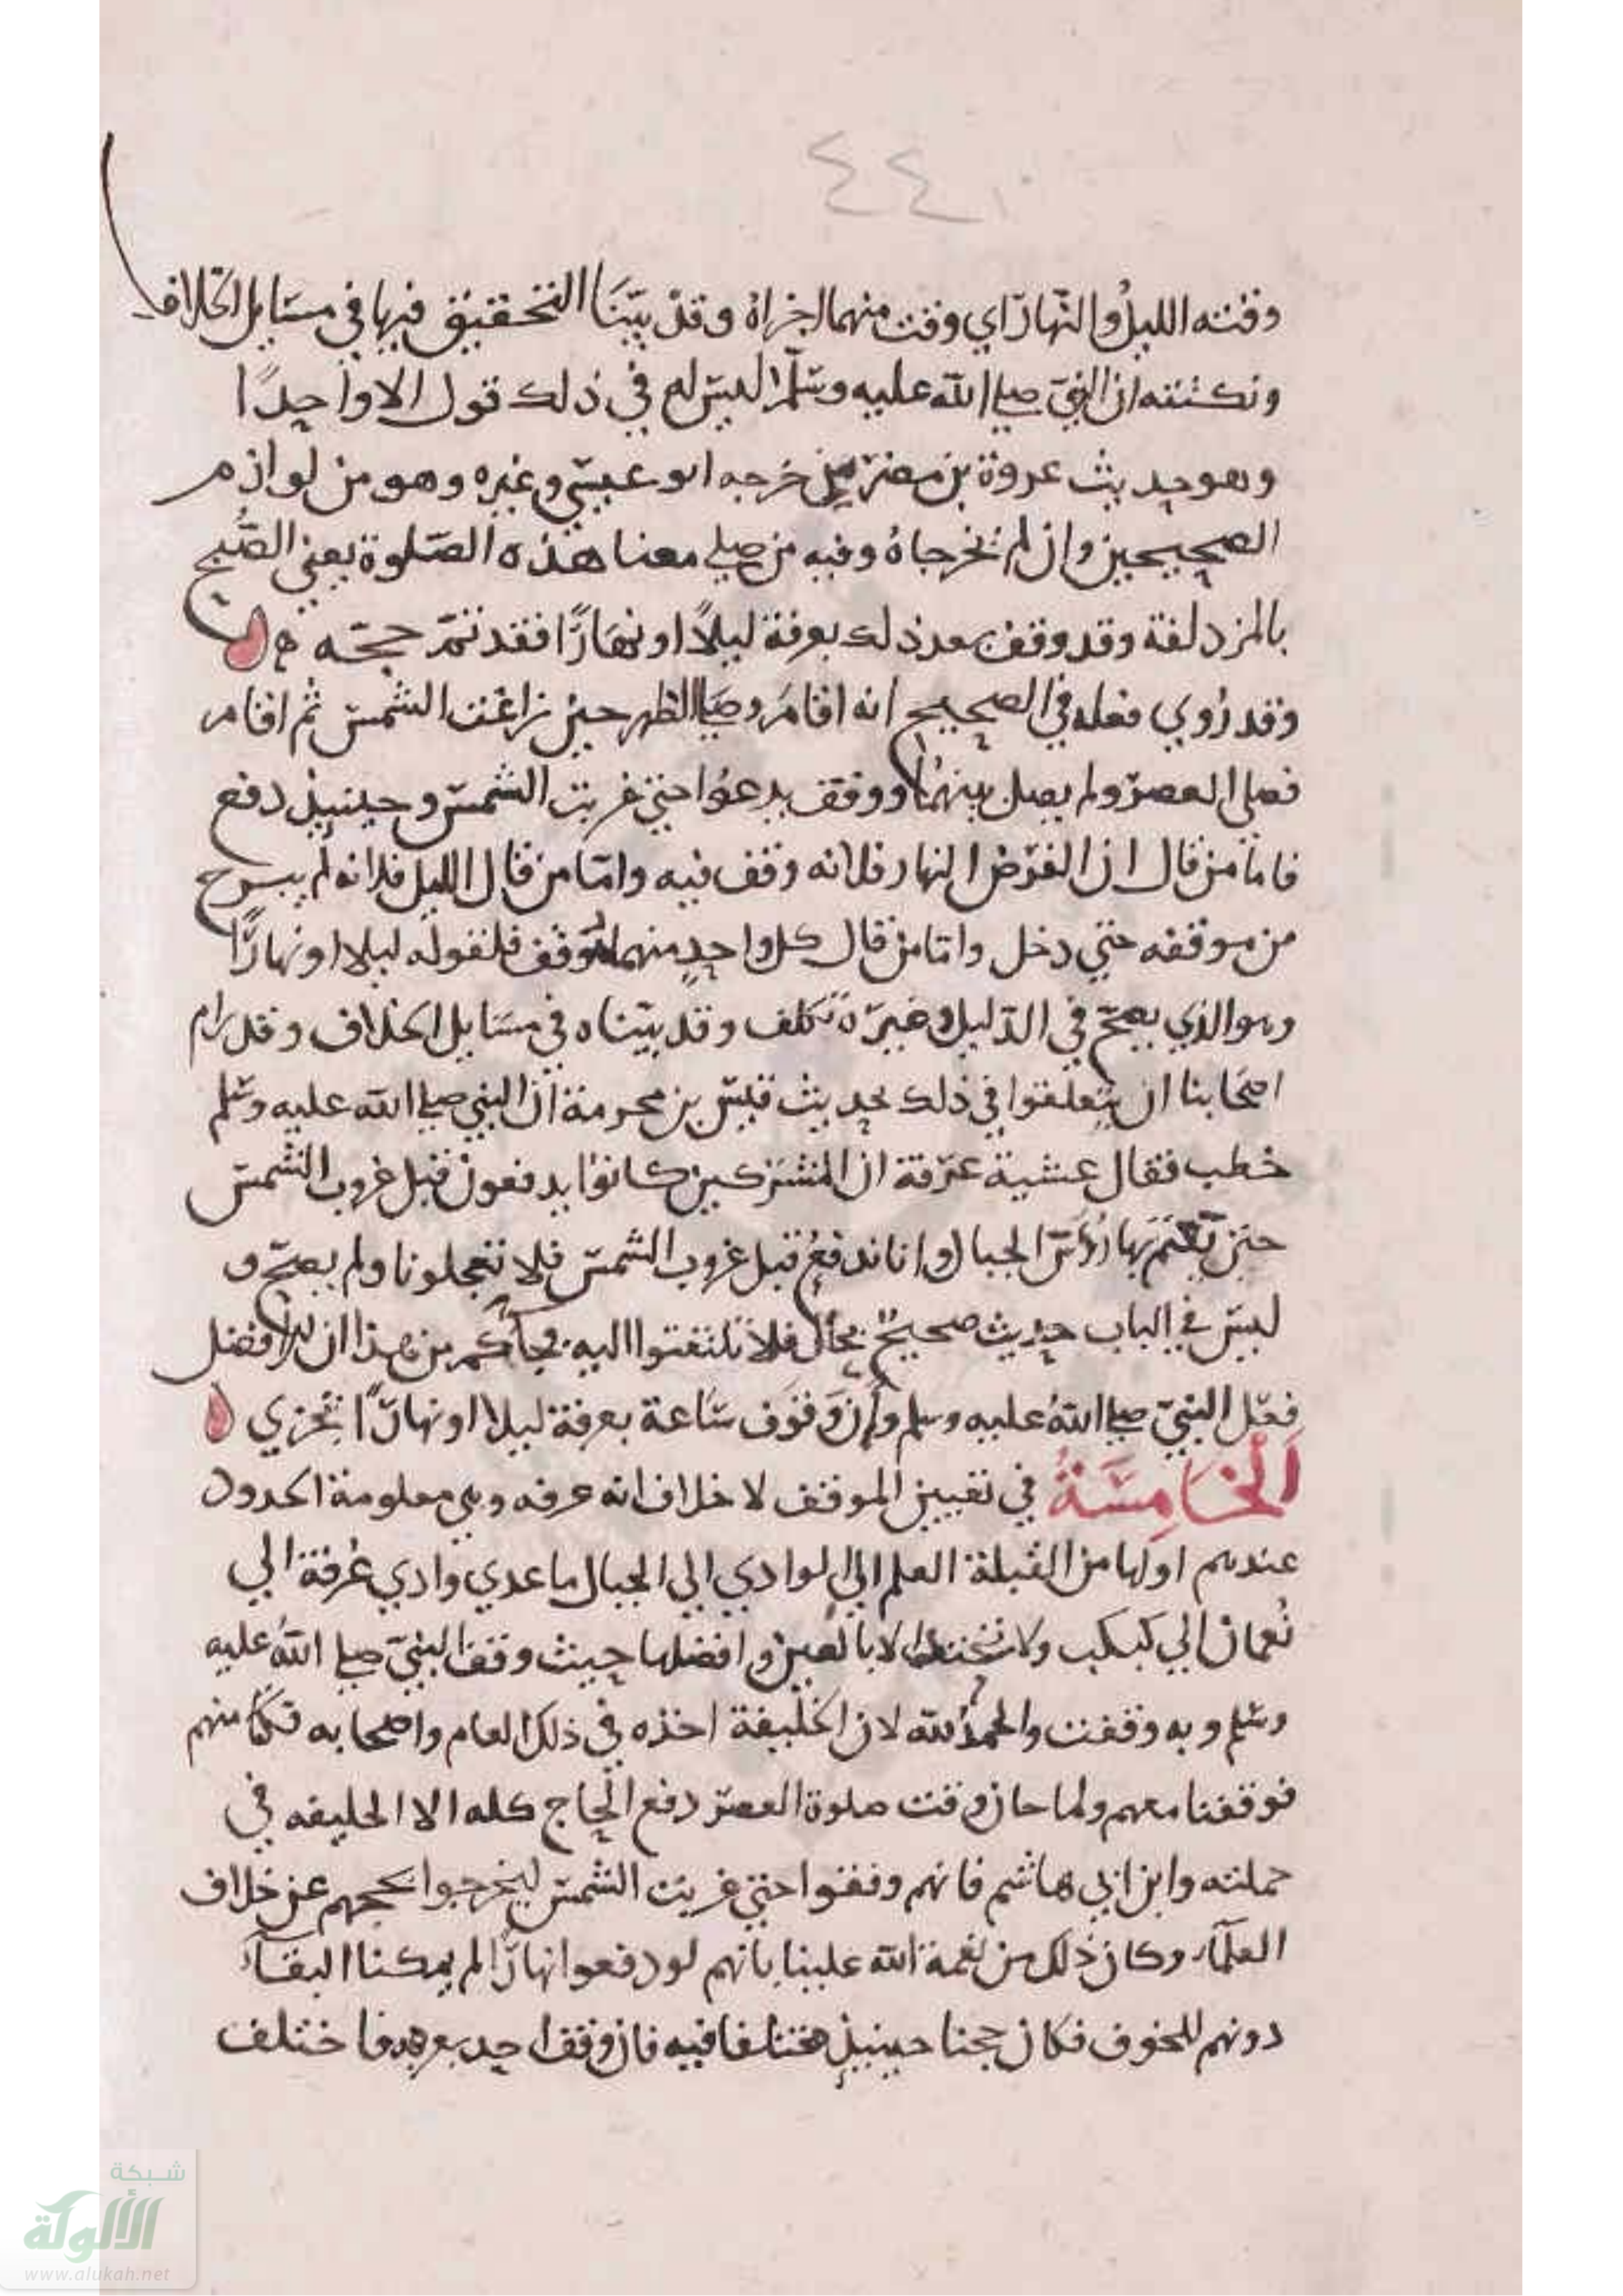 ٤٤٠
وقته الليل والنهار اي وقت منهما اجزاه وقد بيّنا التحقيق فيها في مسايل الخلاف
ونكتته ان النبي صلى الله عليه وسلم ليس له في ذلك قول الا واحدًا
وهو حديث عروة بن مضرس خرجه ابو عيسى وغيره وهو من لوازم
الصحيحين وان لم يخرجاه وفيه من صلى معنا هذه الصلوة يعني الصبح
بالمزدلفة وقد وقف بعد ذلك بعرفة ليلاً او نهارًا فقد تم حجه
وقد رُوي فعله في الصحيح انه اقام وصلى الظهر حين زاغت الشمس ثم اقام
فصلى العصر ولم يصل بينهما ووقف يدعوا حتى غربت الشمس وحينيذ دفع
فاما من قال ان الفرض النهار فلانه وقف فيه واما من قال الليل فلانه لم يبرح
من موقفه حتى دخل واما من قال كل واحد منهما موقف فلقوله ليلا او نهارًا
وهو الذي يصح في الدليل وغيره تكلف وقد بيناه في مسايل الخلاف وقد رام
اصحابنا ان يتعلقوا في ذلك بحديث قيس بن محرمة ان النبي صلى الله عليه وسلم
خطب فقال عشية عرفة ان المشركين كانوا يدفعون قبل غروب الشمس
حين تعتم بها رُؤُس الجبال وانا ندفع قبل غروب الشمس فلا تعجلونا ولم يصح و
ليس في الباب حديث صحيح بحال فلا تلتفتوا اليه من هذا ان افضل
فعل النبي صلى الله عليه وسلم وان وقوف ساعة بعرفة ليلا او نهارًا تجزي
الخامسة في تعيين الموقف لا خلاف انه عرفه وهي معلومة الحدود
عندهم اولها من القبلة العلم الى الوادي الى الجبال ما عدى وادي عُرفة الى
نُعمان الى كبكب ولا الا بالعين وافضلها حيث وقف النبي صلى الله عليه
وسلم وبه وقفت والحمد لله لان الخليفة اخذه في ذلك العام واصحابه فكنا منهم
فوقفنا معهم ولما حان وقت صلوة العصر دفع الحاج كله الا الخليفه في
حملته وابن ابي هاشم فانهم وقفوا حتى غربت الشمس ليخرجوا بحجهم عن خلاف
العلماء وكان ذلك من نعمة الله علينا بانهم لو دفعوا نهارًا لم يمكنا البقاء
دونهم للخوف فكان حجنا حينيذ مختلفا فيه فان وقف احد بعرفه فاختلف
شبكة
الألوكة
www.alukah.net